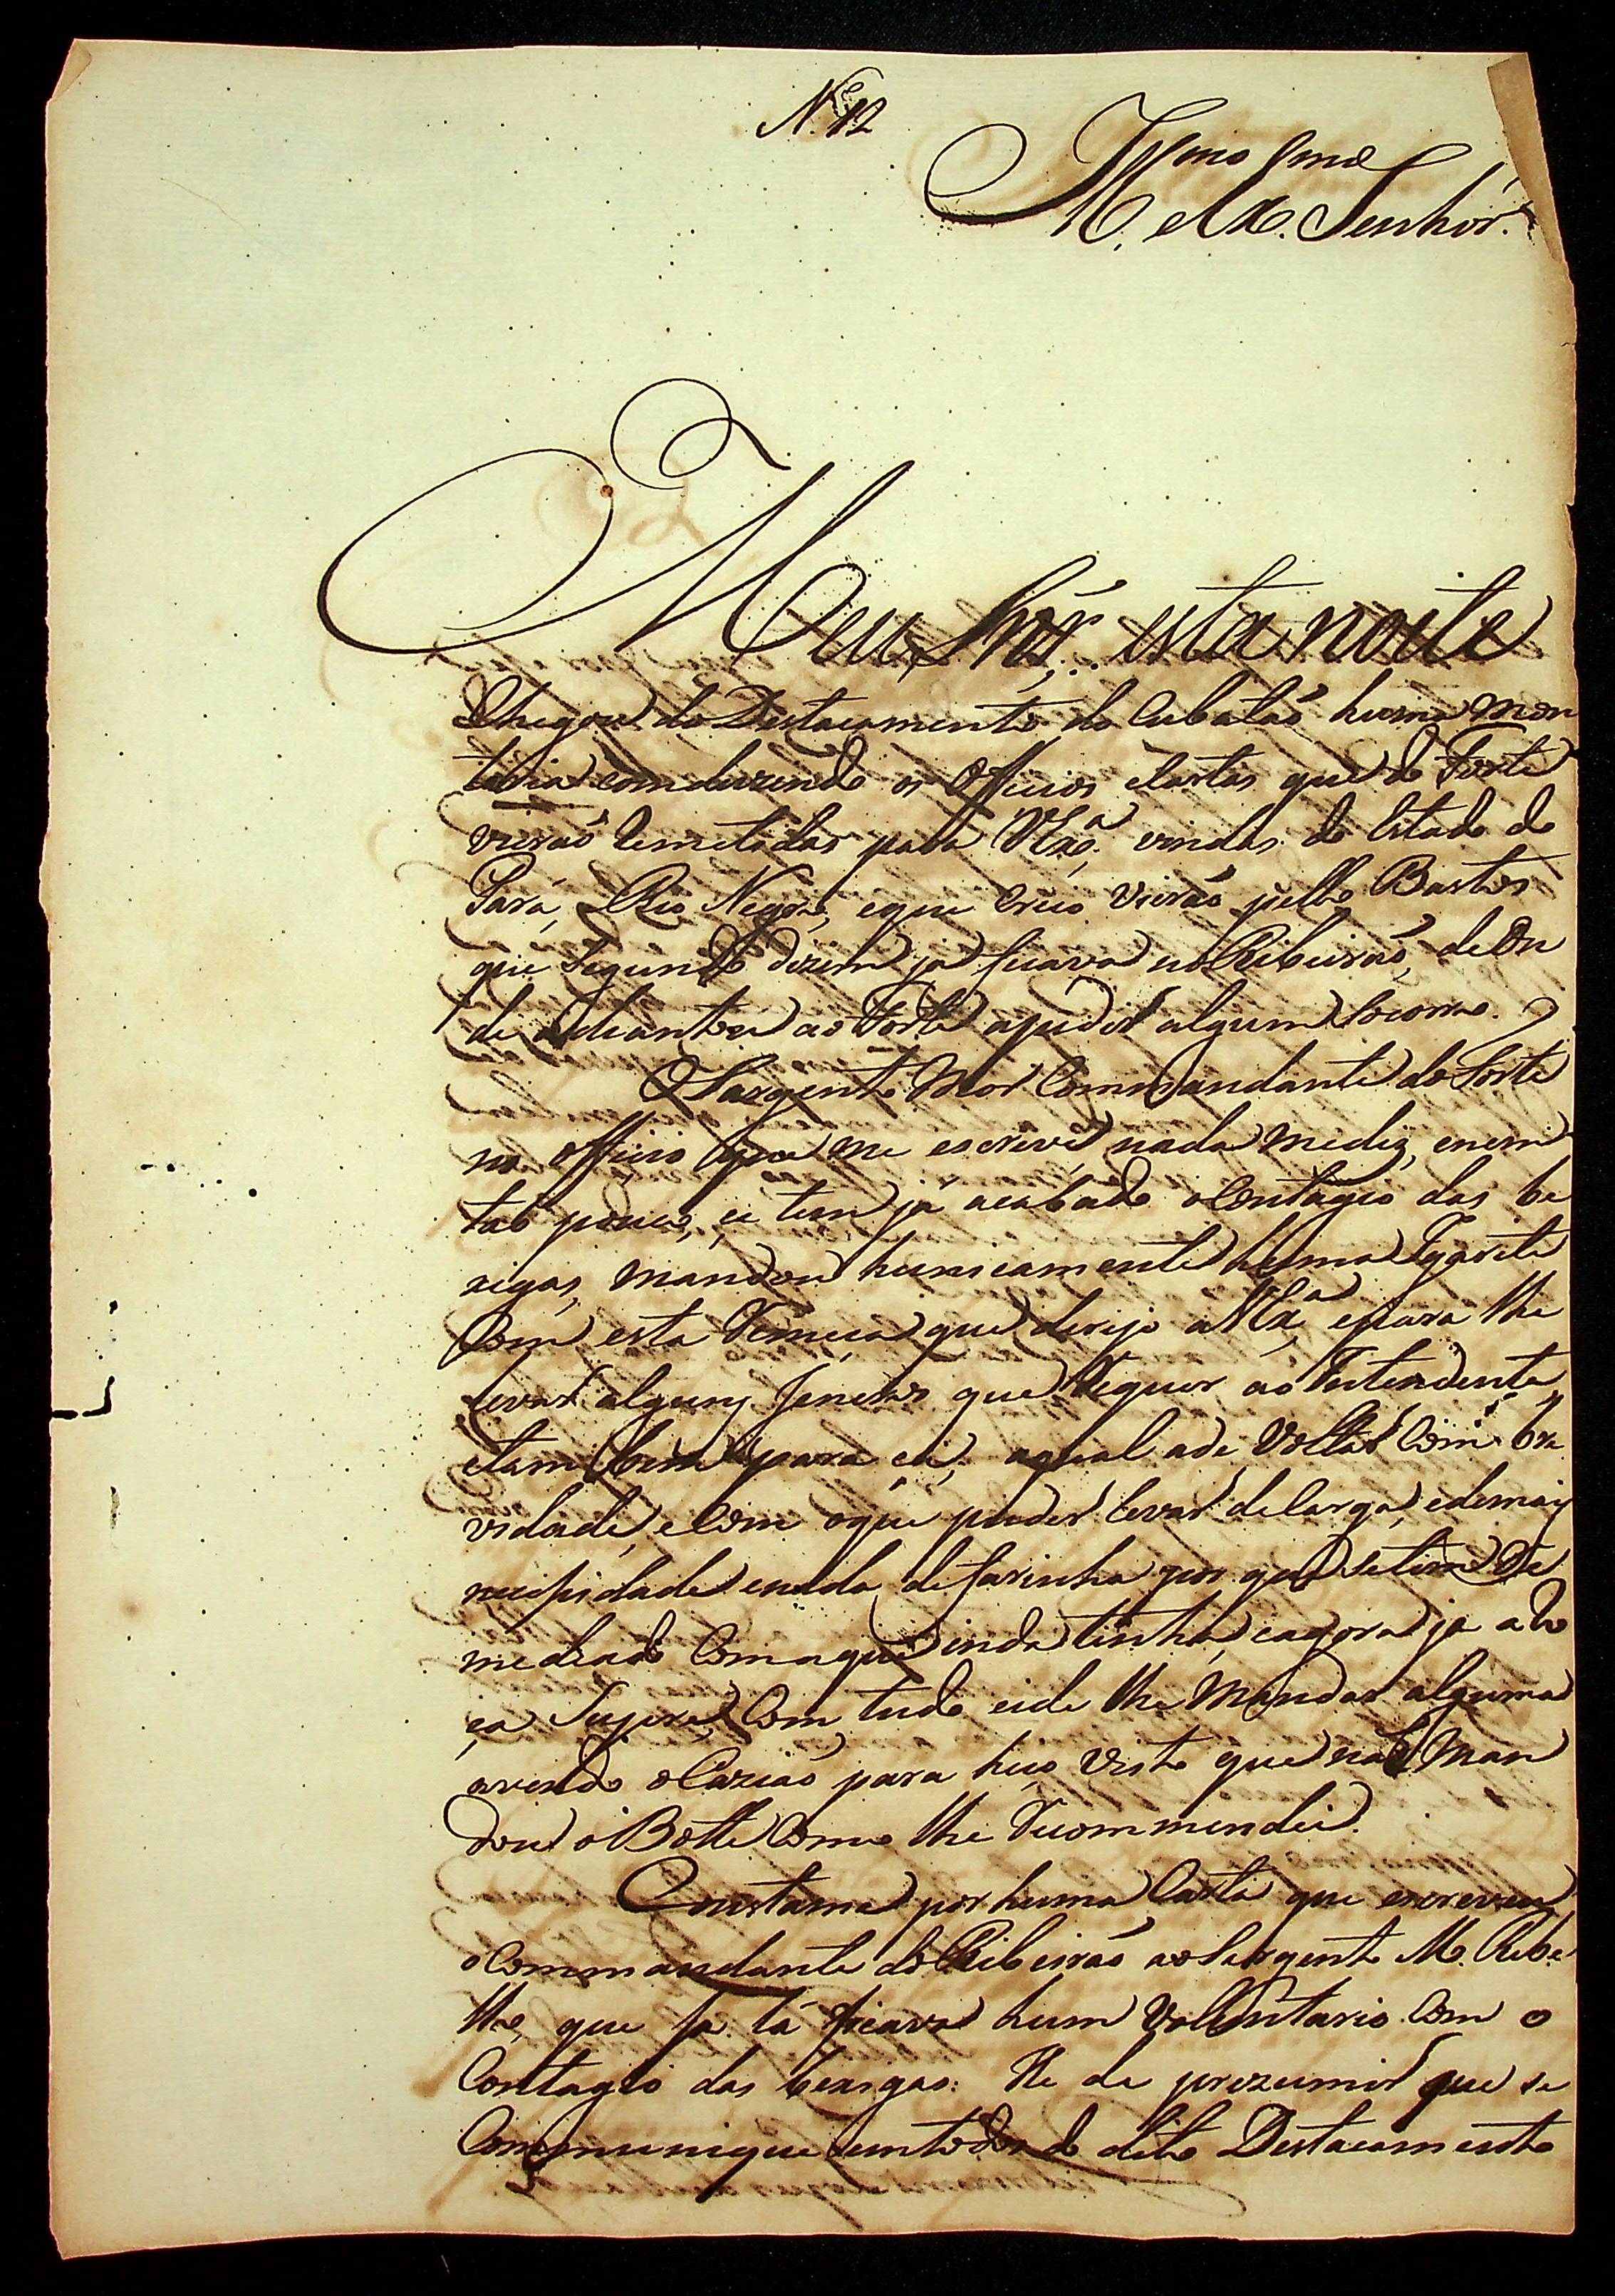 N.º 12
Ill.mo e Ex.mo Senhor.
Meu Snõr. esta noite
Chegou do Destacamento do Cubatão huma mon
taria comduzendo os Officios e Cartas que do Forte
vierão Remetidas para VEx.ª vindas do Estado do
Pará, e Rio Negro, e que creio vierão pello Bastos
que segundo dizem já ficava no Ribeirão, de On
de adiantou ao Forte apedir algum Socorro.
O Sargento Mor Commandante do Forte
no officio que me escreve nada mediz, enem
tão pouco, se tem já acabado o Contagio das be
xigas, mandou hunicamente huma Igarite
Com esta Remeça que derijo a VEx.ª, epara lhe
levar alguns Jeneros que Requer ao Intendente
etambem para cá, aqual ade Voltar Com bre
vidade, e Com oque puder levar de Carga, edemais
necessidade enada de farinha por que setem Re
mediado Com aque inda tinha, eagora ja a
Com tudo eide lhe Mandar alguma
avendo o Cazião para hiço Visto que não Man
dou o Botte Como lhe Recommendei.
Constame por huma Carta que escreveu
o Commandante do Ribeirão ao Sargento M. Rebe
lho, que ja lá ficava hum Vollontario Com o
Contagio das bexigas: He de prezumir que se
Communique emtodo do dito Destacamento